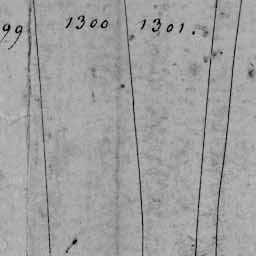 99 1300 1301.